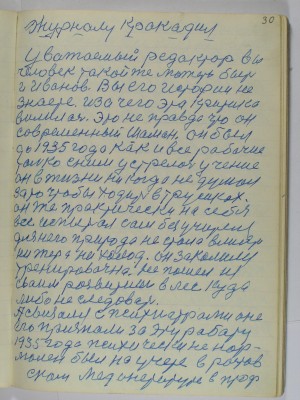 30
Журналу Крокадил
Уважаемый редактор вы
человек такой же может быт
и Иванов. Вы его истории не
знаете. из за чего эта критика
вилилась. Это не правда что он
современный шаман, он был
до 1935 года как и все рабочие
только с ним устрелося учение
он в жизни никогда не думал
за то чтобы ходил в трусиках.
он же практически на себя
все испытал сам без учителя
для него природа не страшна ветер
ни жара ни холод. он закалили
тренировачна. не пошел из
своим розвитием в лес куда
либо не следовал.
Ясвизался с психиатрами оне
его признали за эту работу
1935 года психически не нор-
мален был на учете в ростов
ском мединституте в проф